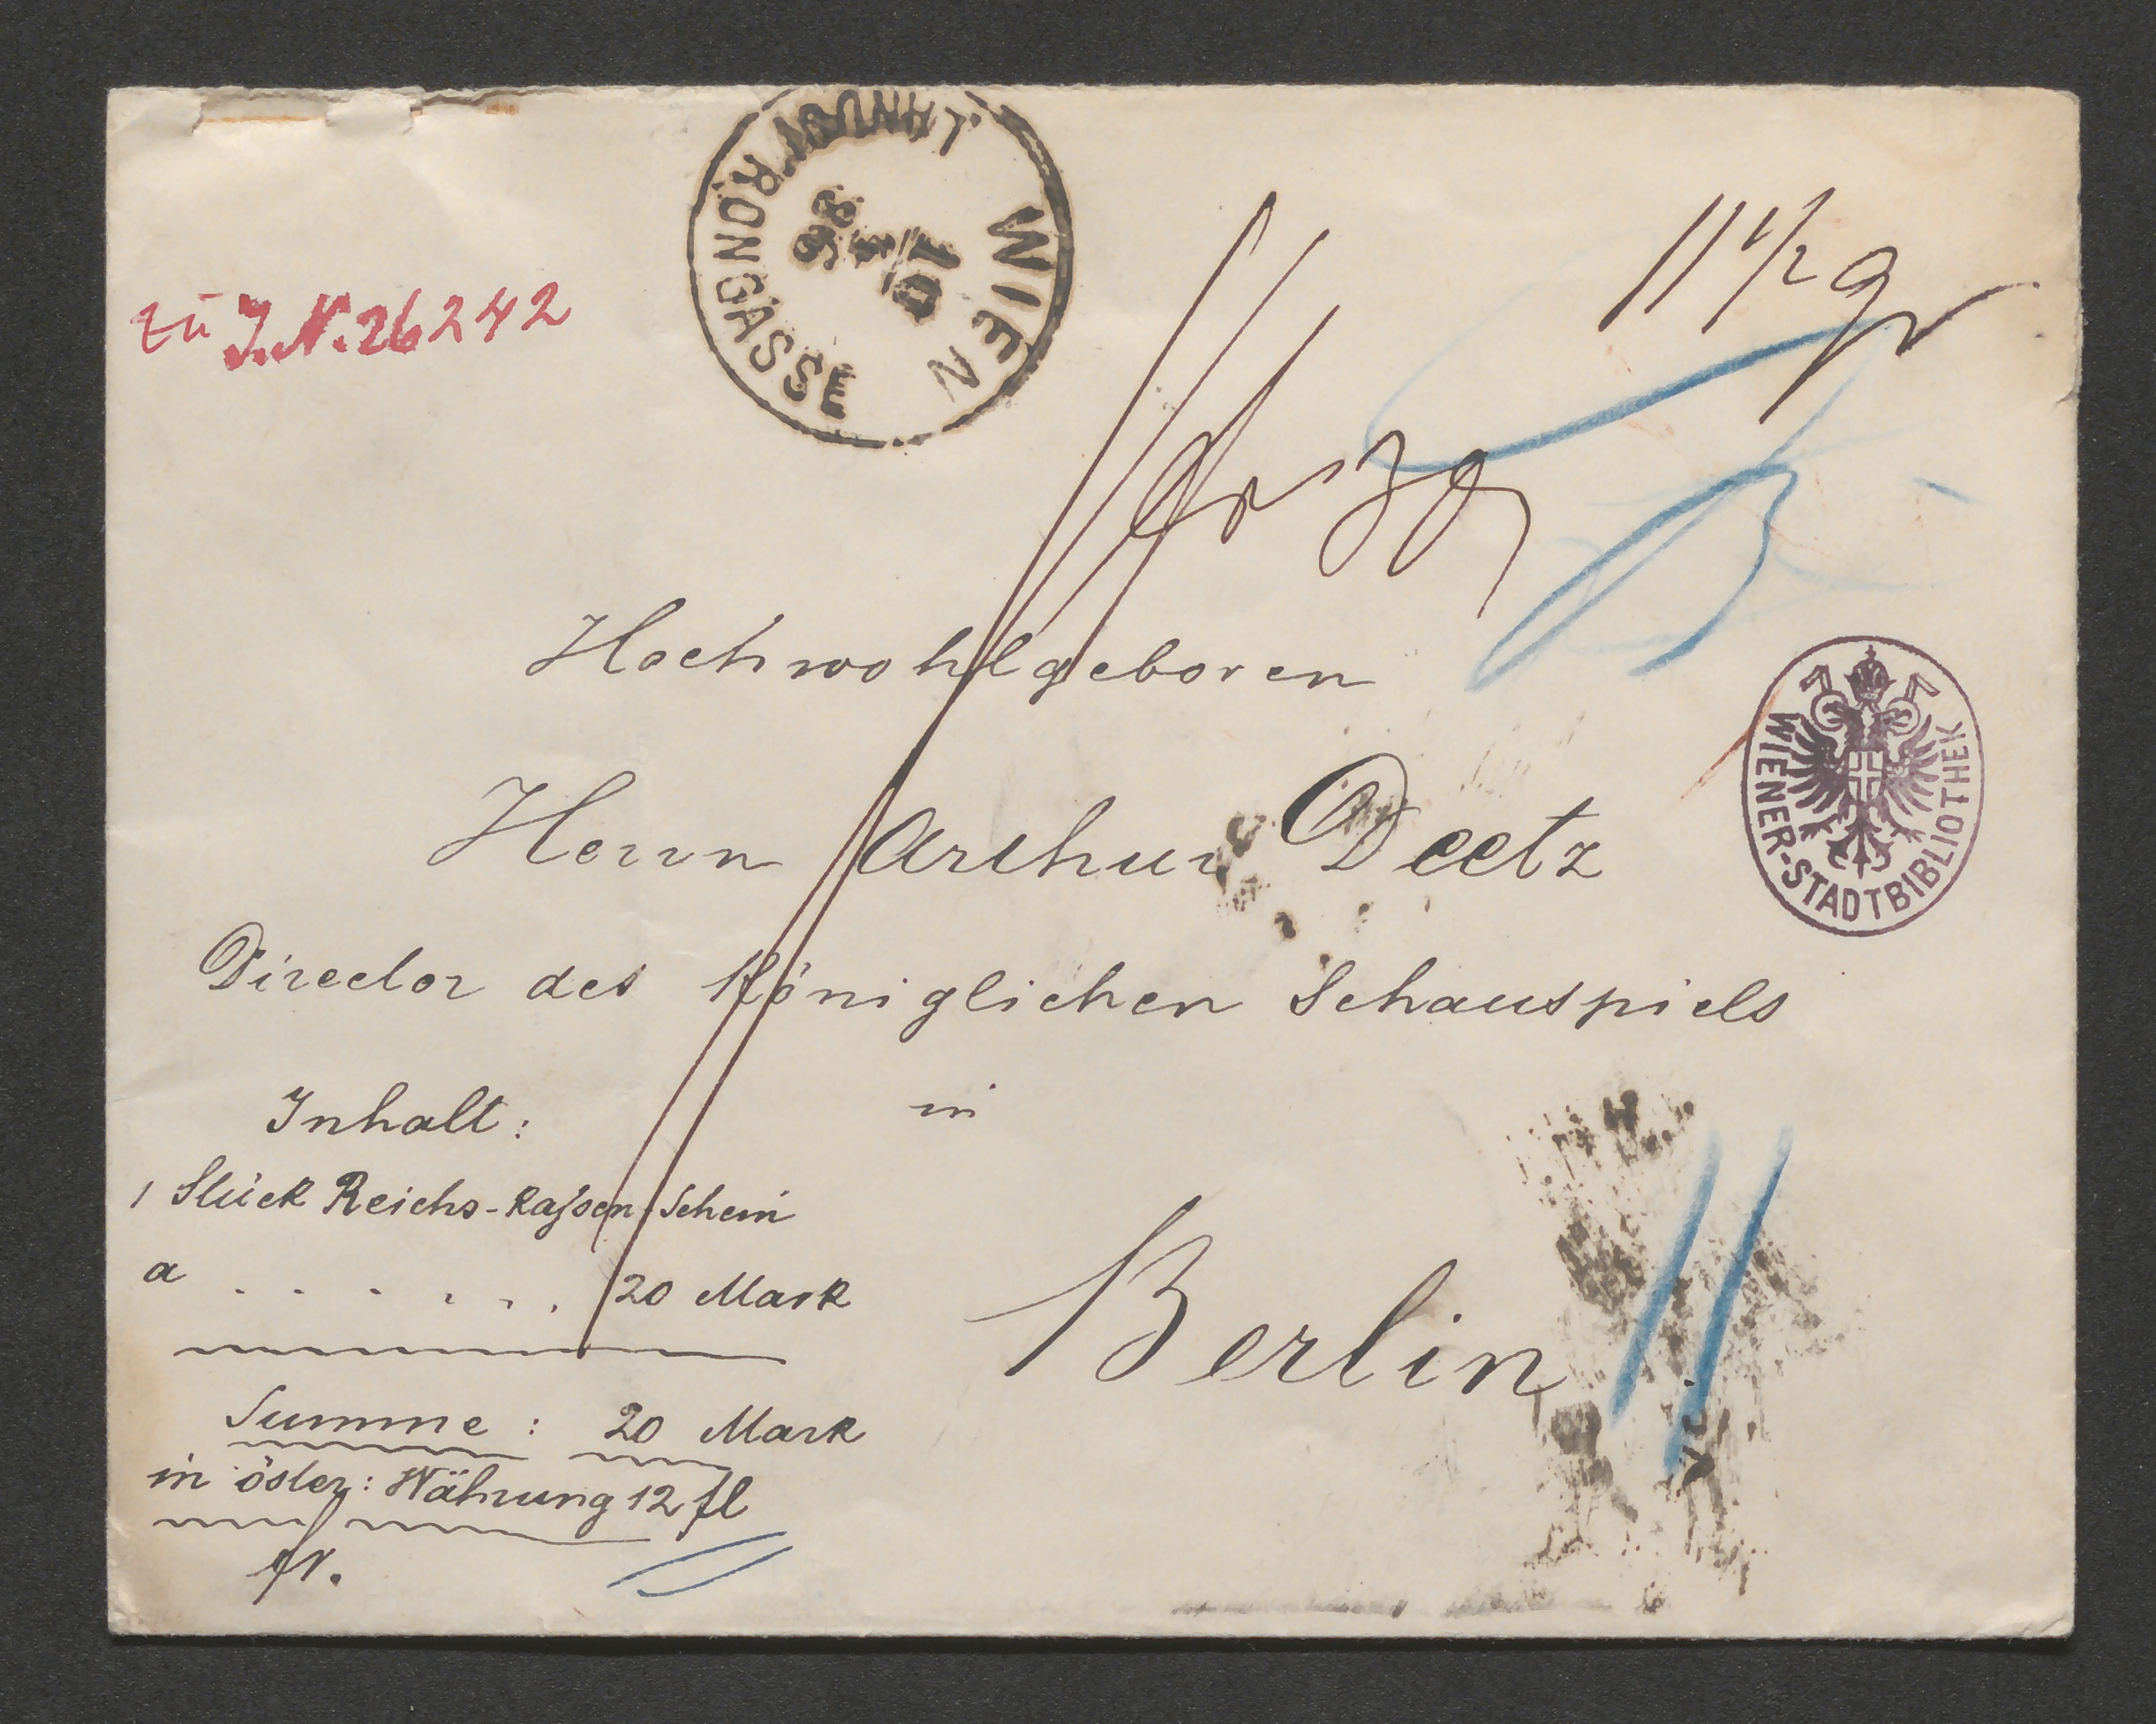 WIEN
LANDSTRONGASSE
10
86
zu J.N. 26242
11 1/2 gr
Hochwohlgeboren
Herrn Arthur Deetz
Director des Königlichen Schauspiels
in
Berlin
Inhalt:
1 Stück Reichs-Kassen-Schein
a . . . . . . 20 Mark
Summe : 20 Mark
in öster: Währung 12 fl
fr.
WIENER-STADTBIBLIOTHEK